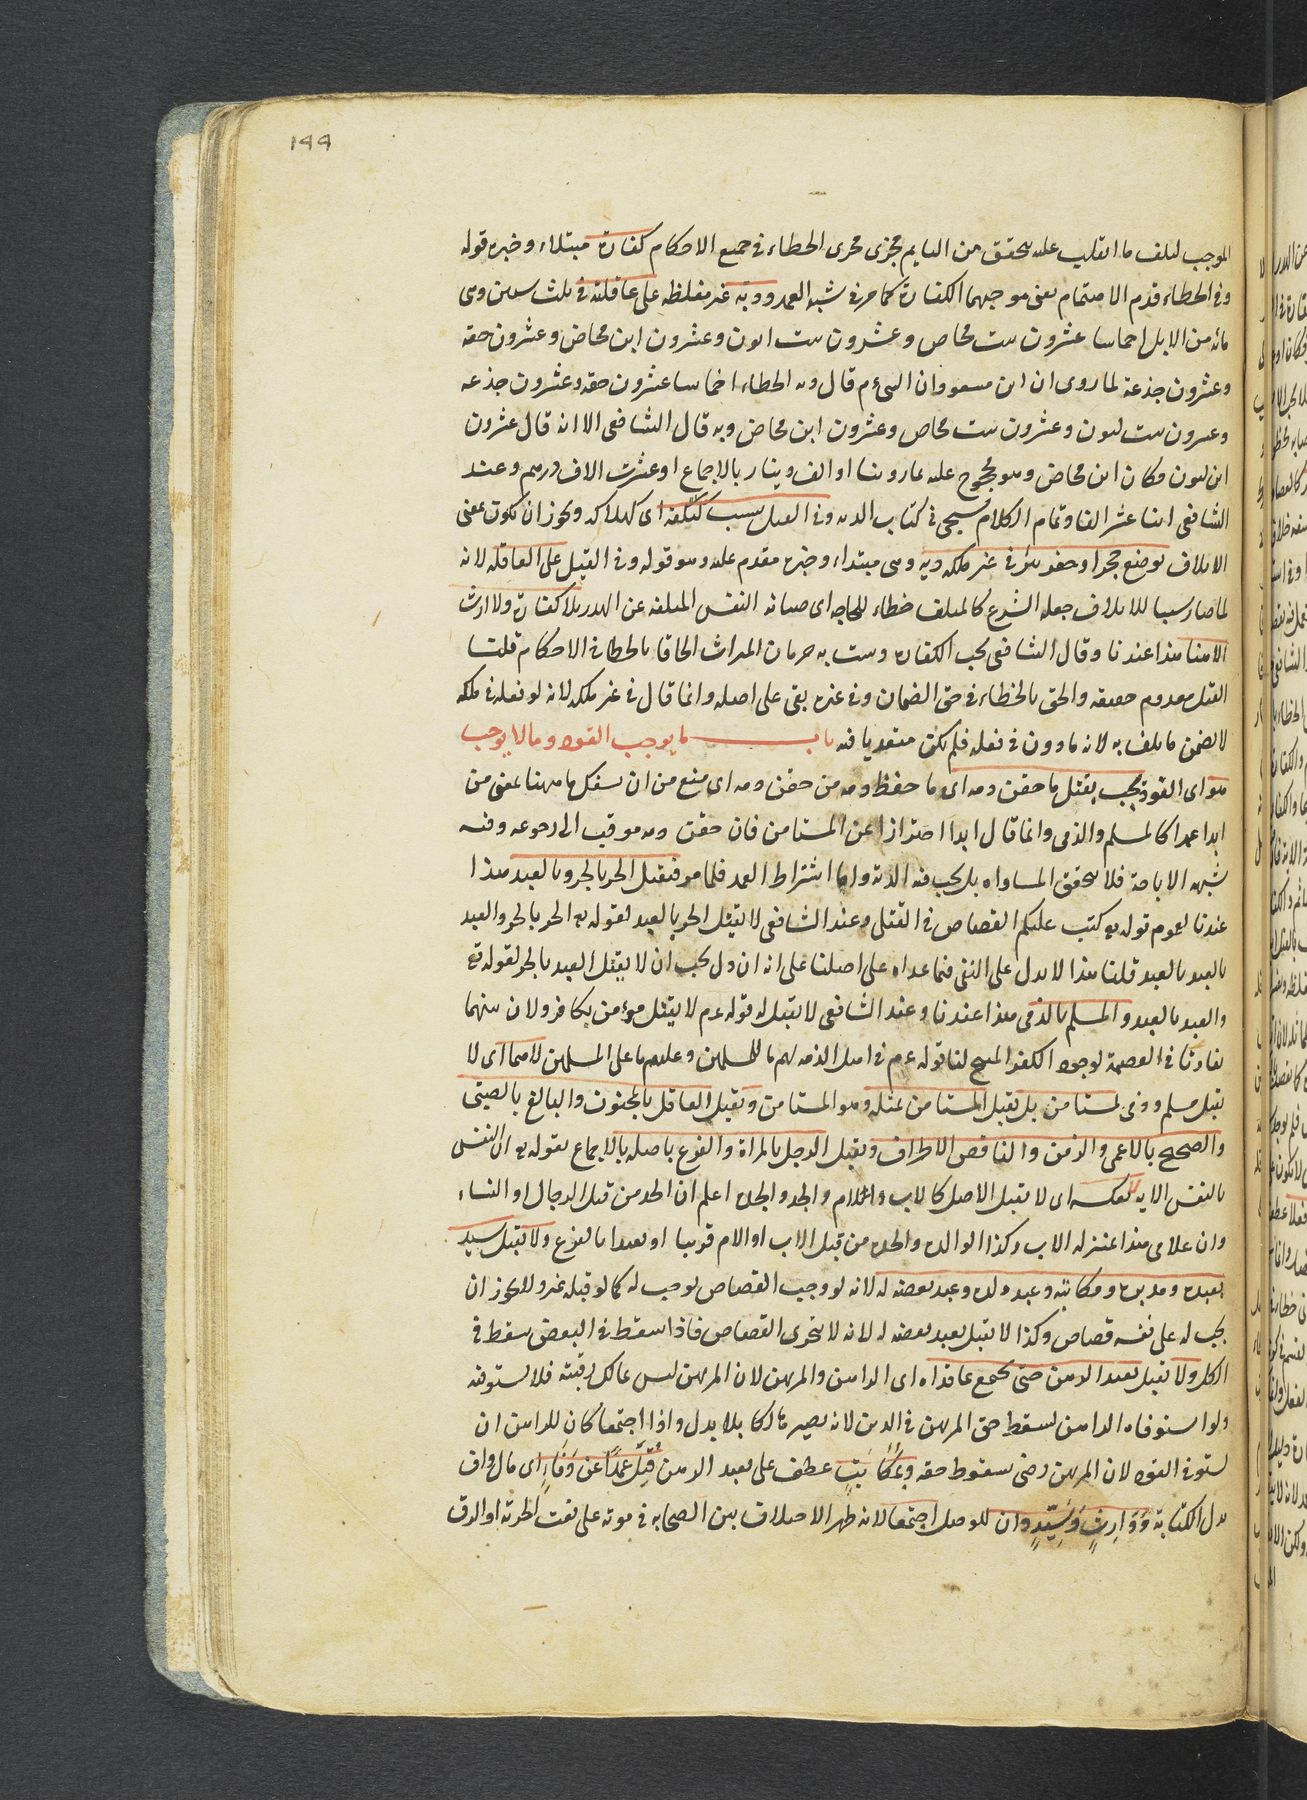 ١٩٩
الموجب لتلف ما انقلب عليه يتحقق من النايم مجرى مجرى الخطاء في جميع الاحكام كفارة مبتداء وخبره قوله
وفي الخطاء قدم الاهتمام يعني موجبهما الكفارة كما مر في شبه العمد ودية غير مغلظة على عاقلته في ثلث سنين وهي
مائه من الابل اخماسا عشرون بنت مخاض وعشرون بنت لبون وعشرون ابن مخاض وعشرون حقه
وعشرون جذعة لما روى ان ابن مسعود ان النبي عم قال دية الخطاء اخماسا عشرون حقه وعشرون جذعه
وعشرون بنت لبون وعشرون بنت مخاض وعشرون ابن مخاض وبه قال الشافعي الا انه قال عشرون
ابن لبون مكان ابن مخاض وهو محجوج عليه بما روينا او الف دينار بالاجماع او عشرة الاف درهم وعند
الشافعي اثنا عشر الفا وتمام الكلام سيجي في كتاب الدية وفي القتل بسبب كتلفه اي كهلاكه ويجوز ان يكون بمعنى
الاتلاف بوضع حجر او حفر بئر في غير ملكه دية وهي مبتداء وخبره مقدم عليه وهو قوله وفي القتل على العاقلة لانه
لما صار سببا للاتلاف جعله الشرع كالمتلف خطاء للحاجه اي صيانه النفس المتلفه عن الهدر بلا كفارة ولا ارث
الا هنا هذا عندنا وقال الشافعي يجب الكفارة ويثبت به حرمان الميراث الحاقا بالخطا في الاحكام قلنا
القتل معدوم حقيقه والحق بالخطاء في حق الضمان وفي غيره بقي على اصله وانما قال في غير ملكه لانه لو فعله في ملكه
لا يضمن ما تلف به لانه مأذون في فعله فلم يكن متعديا فيه باب ما يوجب القود وما لا يوجب
هو اي القود يجب بقتل ما حقن دمه اي ما حفظ دمه من حقن دمه اي منع من ان يسفك ما ههنا بمعنى من
ابدا عمدا كالمسلم والذمي وانما قال ابدا احترازا عن المستامن فان حقن دمه موقت الى رجوعه وفيه
شبهه الاباحة فلا يتحقق المساواه بل يجب فيه الدية واما اشتراط العمد فلما مر فيقتل الحر بالحر وبالعبد هذا
عندنا لعموم قوله تع كتب عليكم القصاص في القتلى وعند الشافعي لا يقتل الحر بالعبد لقوله تع الحر بالحر والعبد
بالعبد بالعبد قلنا هذا لا يدل على النفي فيما عداه على اصلنا على انه ان دل يجب ان لا يقتل العبد بالحر لقوله تع
والعبد بالعبد والمسلم بالذمي هذا عندنا وعند الشافعي لا يقتل له قوله عم لا يقتل مؤمن بكافر ولان بينهما
تفاوتا في العصمة لوجود الكفر المبيح لنا قوله عم في اهل الذمه لهم ما للمسلمين وعليهم ما على المسلمين لا هما اي لا
يقتل مسلم وذمي بمستامن بل يقتل المستامن بمثله وهو المستامن ويقتل العاقل بالمجنون والبالغ بالصبي
والصحيح بالاعمى والزمن والناقص الاطراف ويقتل الرجل بالمراة والفرع باصله بالاجماع لقوله تع ان النفس
بالنفس الايه لا بعكسه اي لا يقتل الاصل كالاب والام والجد والجده اعلم ان الجد من قبل الرجال او النساء
وان علا في هذا بمنزله الاب وكذا الوالده والجده من قبل الاب او الام قريبا او بعيدا بالفرع ولا يقتل سيد
بعبده ومدبره ومكاتبه وعبد ولده وعبد بعضه له لانه لو وجب القصاص لوجب له كما لو قتله غيره ولا يجوز ان
يجب له على نفسه قصاص وكذا لا يقتل بعبد بعضه له لانه لا يتجزى القصاص فاذا سقط في البعض سقط في
الكل ولا يقتل بعبد الرهن حتى يجتمع عاقداه اي الراهن والمرتهن لان المرتهن ليس بمالك رقبته فلا يستوفيه
ولو استوفاه الراهن لسقط حق المرتهن في الدين لانه يصير هالكا بلا بدل واذا اجتمعا كان للراهن ان
يستوفي القود لان المرتهن رضي بسقوط حقه وبمكاتب عطف على بعبد الرهن قتل عمدا عن وفاء اي مال واف
بدل الكتابة ووارث وسيد وان للوصل اجتمعا لانه ظهر الاختلاف بين الصحابه في موته على نعت الحرية او الرق